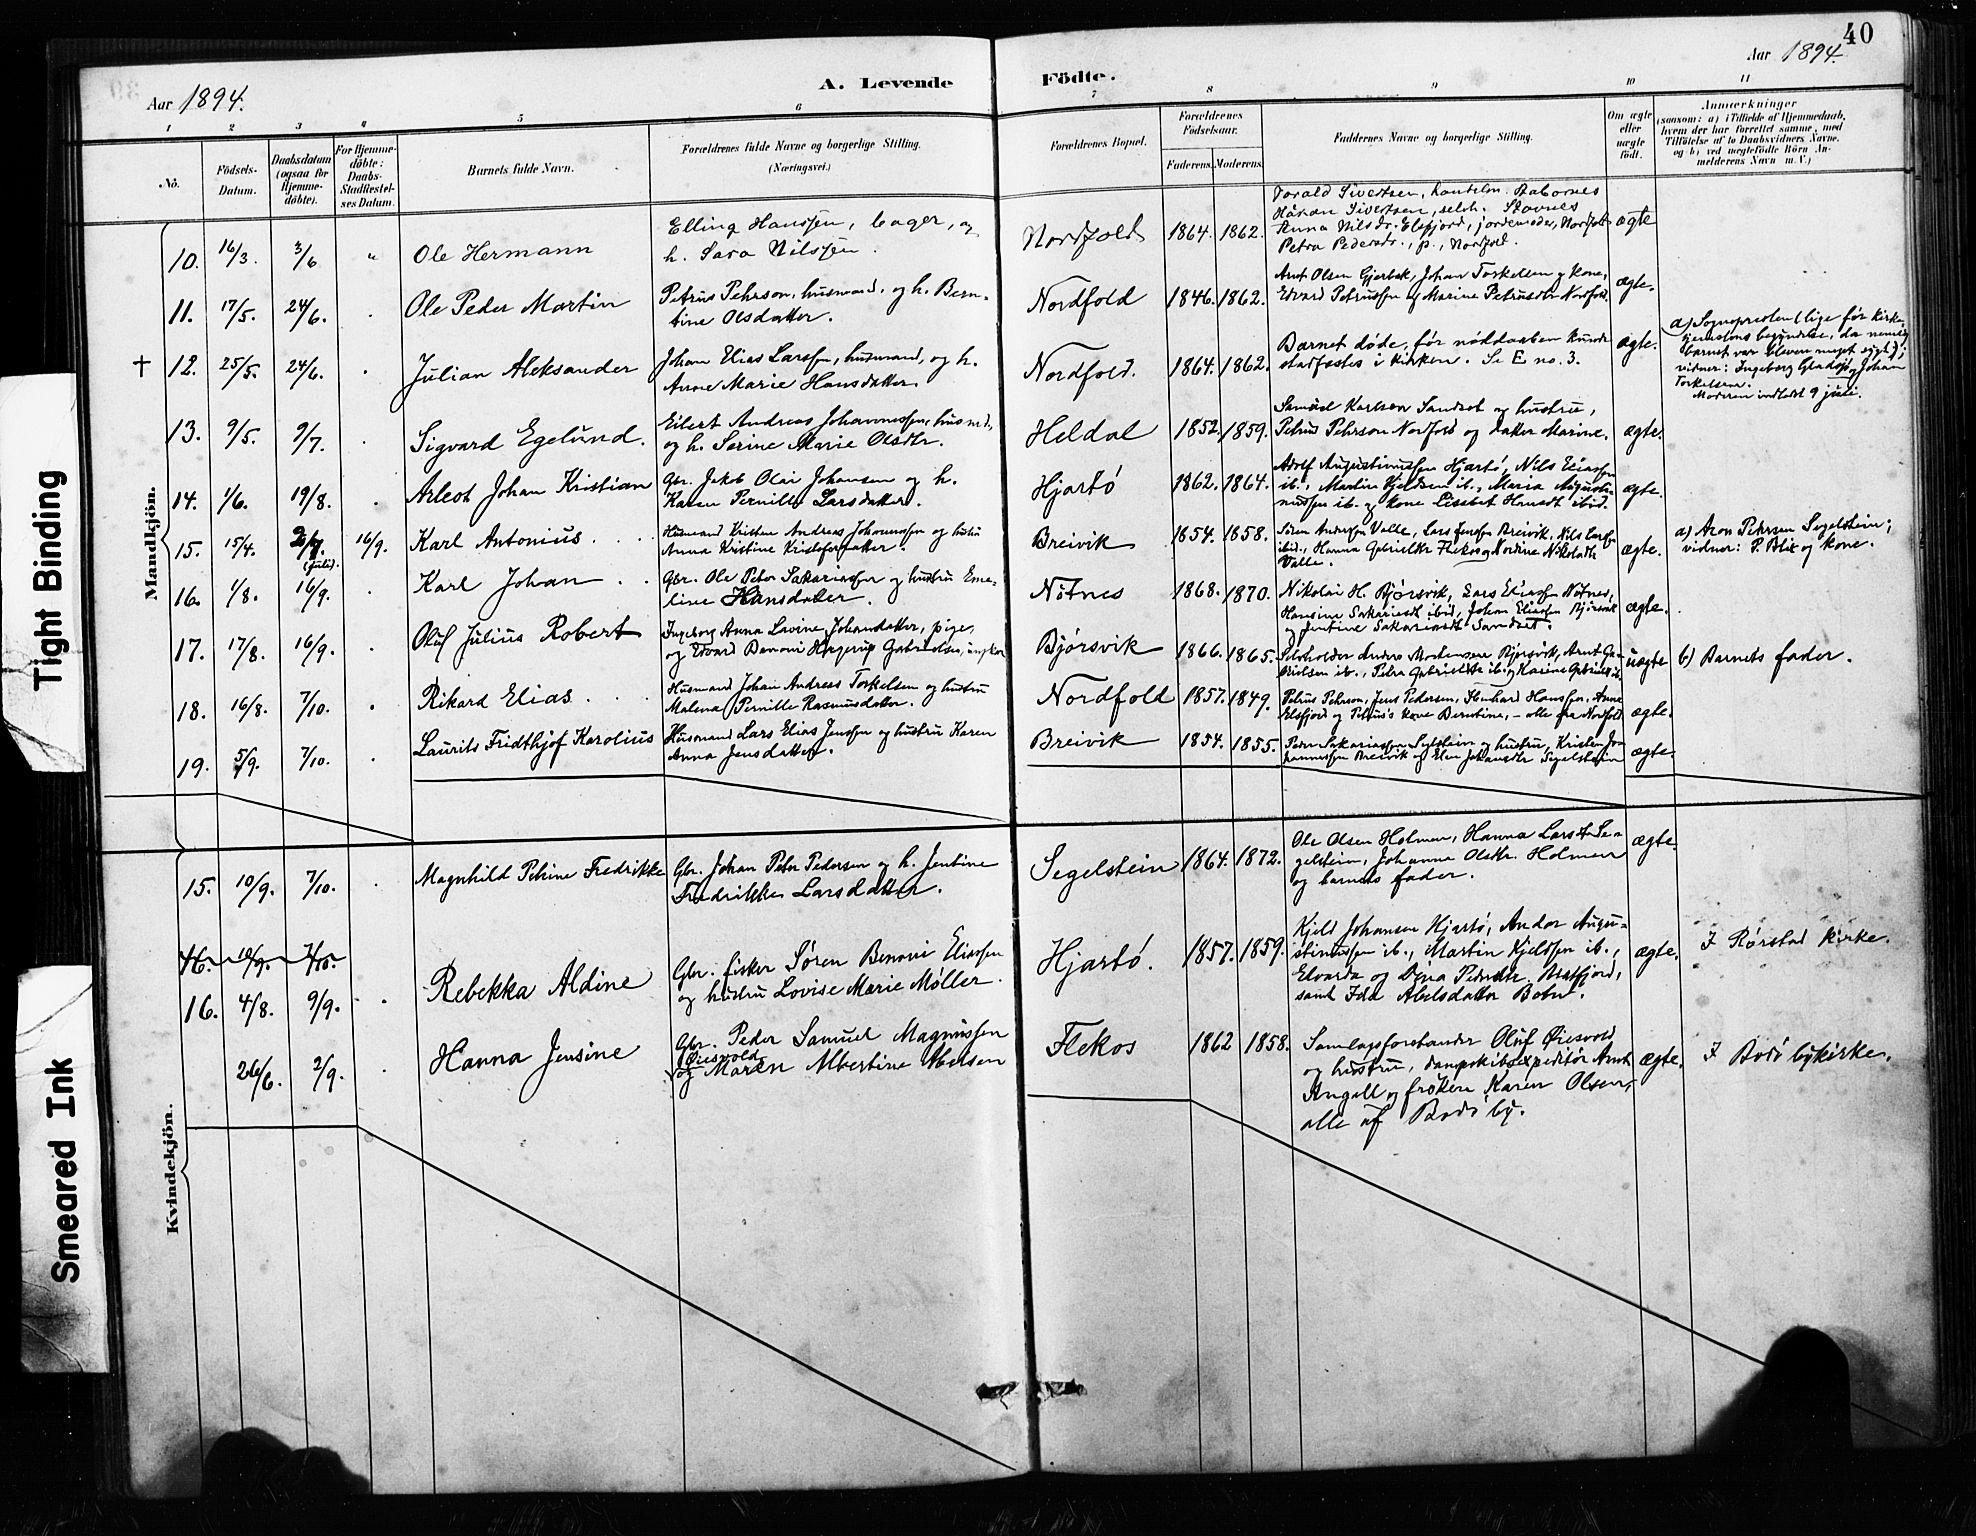 40
Aar 1894.
A. Levende Födte.
Aar 1894.
1 2 3 4 5 6 7 8 9 10 11
No.
Födsels-Datum.
Daabsdatum (ogsaa for Hjemme-döbte).
For Hjemme-döbte: Daabs-Stadfæstel-ses Datum.
Barnets fulde Navn.
Forældrenes fulde Navne og borgerlige Stilling.
(Næringsvei.)
Forældrenes Bopæl.
Forældrenes Födselsaar.
Faderens. Moderens.
Faddernes Navne og borgerlige Stilling.
Om ægte eller uægte födt.
Anmærkninger
(saasom: a) i Tilfælde af Hjemmedaab,
hvem der har forrettet samme, med
Tilföielse af to Daabsvidners Navne,
og b) ved uægtefödte Börn An-
melderens Navn m. V.)
Mandkjön.
10. 16/3. 3/6 " Ole Hermann
Elling Hanssen, bager, og
h. Sara Nilssen.
Nordfold 1864. 1862.
Håkan Sivertsen, selvh. Stavnes
Anna Nilsdr. Elsfjord, jordemoder, Nordfold
Petra Pedersdr., p., Nordfold.
ægte
11. 17/5. 24/6. Ole Peder Martin
Petrus Pehrson, husmand, og h. Bern-
tine Olsdatter.
Nordfold 1846. 1862.
Arnt Olsen Gjerbak, Johan Torkelsen og kone,
Edvard Petrussen og Marine Petrusdtr Nordfold.
ægte.
† 12. 25/5. 24/6. Julian Aleksander
Johan Elias Larssen, husmand, og h.
Anne Marie Hansdatter.
Nordfold. 1864. 1862.
Barnet døde, før nøddaaben kunde
stadfæstes i kirken. Se E no. 3.
ægte.
a) Sognepresten (lige før kirke-
tjenestens begyndelse, da nemlig
barnet var bleven meget sygt);
vidner: Ingeborg Gladsø og Johan
Torkelsen.
Moderen indledet 9 juli.
13. 9/5. 9/7. Sigvard Egelund.
Eilert Andreas Johannessen, husmd,
og h. Serine Marie Olsdtr.
Heldal 1852. 1859.
Samuel Karlsen Sandset og hustru,
Petrus Pehrson Nordfold og datter Marine.
ægte.
14. 1/6. 19/8. Arleot Johan Kristian
Gbr. Jakob Olai Johansen og h.
Karen Pernille Larsdatter.
Hjartö 1862. 1864.
Adolf Augustinussen Hjartö, Nils Eliassen
ib., Martin Kjeldsen ib., Maria Augusti-
nussen ib. og kone Lisbet Hansdt ibid.
ægte.
15. 15/4. 2/7. (juli). 16/9. Karl Antonius.
Husmand Kristen Andreas Johannessen og hustru
Anna Kristine Kristofersdatter.
Breivik 1854. 1858.
Sören Andersen Valle, Lars Jensen Breivik, Nils Larsen
ibid., Hanna Gabrielsdtr Flekos og Nordine Nikolaidtr
Valle.
ægte.
a) Aron Pehrsen Segelstein;
vidner: P. Blix og kone.
16. 1/8. 16/9. Karl Johan
Gbr. Ole Peter Sakariassen og hustru Eme-
line Hansdatter.
Nötnes 1868. 1870.
Nikolai H. Bjørsvik, Lars Eliassen Nötnes,
Hansine Sakariasdt ibid, Johan Eliassen Bjørsvik
og Jentine Sakariasdt Sandset.
ægte.
17. 17/8. 16/9. Oluf Julius Robert
Ingeborg Anna Lovine Johansdatter, pige,
og Edvard Benoni Hagerup Gabrielsen, ungkar
Bjørsvik 1866. 1865.
Selvholder Anders Mortensen Bjørsvik, Arnt Ga-
brielsen ib., Petra Gabrielsdtr ib. og Karine Gabrielsdt ib.
uægte
b) Barnets fader.
18. 16/8. 7/10. Rikard Elias.
Husmand Johan Andreas Torkelsen og hustru
Malena Pernille Rasmusdatter.
Nordfold 1857. 1849.
Petrus Pehrson, Jens Pedersen, Hanssen, Anna
Elsfjord og Petrus's kone Berntine, – alle fra Nordfold
ægte.
19. 5/9. 7/10. Laurits Fridthjof Karolius
Husmand Lars Elias Jenssen og hustru Karen
Anna Jensdatter.
Breivik 1854. 1855.
Peder Sakariassen Segelstein og hustru, Kristen Jo-
hannessen Breivik og Elen Johansdtr Segelstein
ægte.
Kvindekjön.
15. 10/9. 7/10. Magnhild Petrine Fredrikke
Gbr. Johan Peter Pedersen og h. Jentine
Fredrikke Larsdatter.
Segelstein 1864. 1872.
Ole Olsen Holman, Hanna Larsdt Se-
gelstein, Johanna Olsdtr. Holman
og barnets fader.
ægte.
16. 10/9. 7/10.
16. 4/8. 9/9. Rebekka Aldine
Gbr. fisker Søren Benoni Eliassen
og hustru Lovise Marie Møller.
Hjartö. 1857. 1859.
Kjeld Johansen Hjartö, Andor Augu-
stinussen ib., Martin Kjeldsen ib.,
Edvarda og Dina Pedersdtr. Vestfjord,
samt Ida Abelsdatter Botn.
ægte.
I Rørstad kirke.
26/6. 2/9. Hanna Jensine
Gbr. Peder Samuel Magnussen
Øiesvold
og Maren Albertine Abelsen
Flekos 1862 1858.
Samlagsforstander Oluf Øiesvold
og hustru, dampskibsexpeditör Arnt
Angell og frøken Karen Olsen,
alle af Bodö by.
ægte.
I Bodö bykirke.
Tight Binding
Smeared Ink